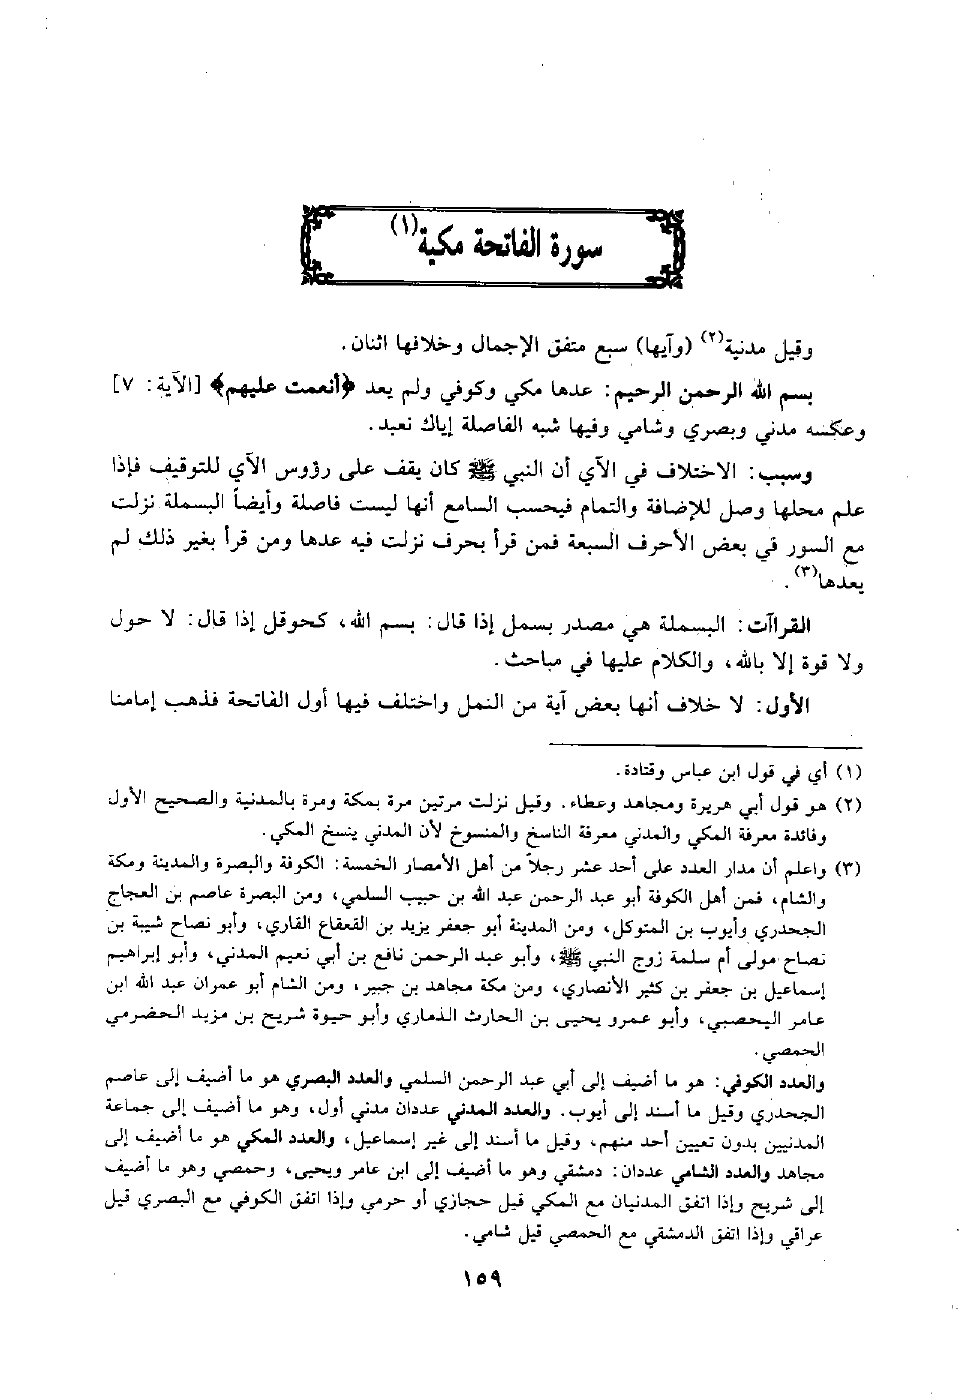 سورة الفاتحة مكية(١)
وقيل مدنية(٢) (وآيها) سبع متفق الإجمال وخلافها اثنان.
بسم الله الرحمن الرحيم: عدها مكي وكوفي ولم يعد ﴿أنعمت عليهم﴾ [الآية: ٧]
وعكسه مدني وبصري وشامي وفيها شبه الفاصلة إياك نعبد.
وسبب: الاختلاف في الآي أن النبي ﷺ كان يقف على رؤوس الآي للتوقيف فإذا
علم محلها وصل للإضافة والتمام فيحسب السامع أنها ليست فاصلة وأيضاً البسملة نزلت
مع السور في بعض الأحرف السبعة فمن قرأ بحرف نزلت فيه عدها ومن قرأ بغير ذلك لم
يعدها(٣).
القراآت: البسملة هي مصدر بسمل إذا قال: بسم الله، كحوقل إذا قال: لا حول
ولا قوة إلا بالله، والكلام عليها في مباحث.
الأول: لا خلاف أنها بعض آية من النمل واختلف فيها أول الفاتحة فذهب إمامنا
(١) أي في قول ابن عباس وقتادة.
(٢) هو قول أبي هريرة ومجاهد وعطاء. وقيل نزلت مرتين مرة بمكة ومرة بالمدنية والصحيح الأول
وفائدة معرفة المكي والمدني معرفة الناسخ والمنسوخ لأن المدني ينسخ المكي.
(٣) واعلم أن مدار العدد على أحد عشر رجلاً من أهل الأمصار الخمسة: الكوفة والبصرة والمدينة ومكة
والشام، فمن أهل الكوفة أبو عبد الرحمن عبد الله بن حبيب السلمي، ومن البصرة عاصم بن العجاج
الجحدري وأيوب بن المتوكل، ومن المدينة أبو جعفر يزيد بن القعقاع القاري، وأبو نصاح شيبة بن
نصاح مولى أم سلمة زوج النبي ﷺ، وأبو عبد الرحمن نافع بن أبي نعيم المدني، وأبو إبراهيم
إسماعيل بن جعفر بن كثير الأنصاري، ومن مكة مجاهد بن جبير، ومن الشام أبو عمران عبد الله ابن
عامر اليحصبي، وأبو عمرو يحيى بن الحارث الذماري وأبو حيوة شريح بن مزيد الحضرمي
الحمصي.
والعدد الكوفي: هو ما أضيف إلى أبي عبد الرحمن السلمي والعدد البصري هو ما أضيف إلى عاصم
الجحدري وقيل ما أسند إلى أيوب. والعدد المدني عددان مدني أول، وهو ما أضيف إلى جماعة
المدنيين بدون تعيين أحد منهم، وقيل ما أسند إلى غير إسماعيل، والعدد المكي هو ما أضيف إلى
مجاهد والعدد الشامي عددان: دمشقي وهو ما أضيف إلى ابن عامر ويحيى، وحمصي وهو ما أضيف
إلى شريح وإذا اتفق المدنيان مع المكي قيل حجازي أو حرمي وإذا اتفق الكوفي مع البصري قيل
عراقي وإذا اتفق الدمشقي مع الحمصي قيل شامي.
١٥٩